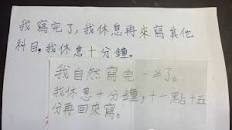 我寫完了,我休息再來寫其他
科目。我休息十分鐘。
我自然寫完一半了。
我休息十分鐘,十一點十五
分再回來寫。